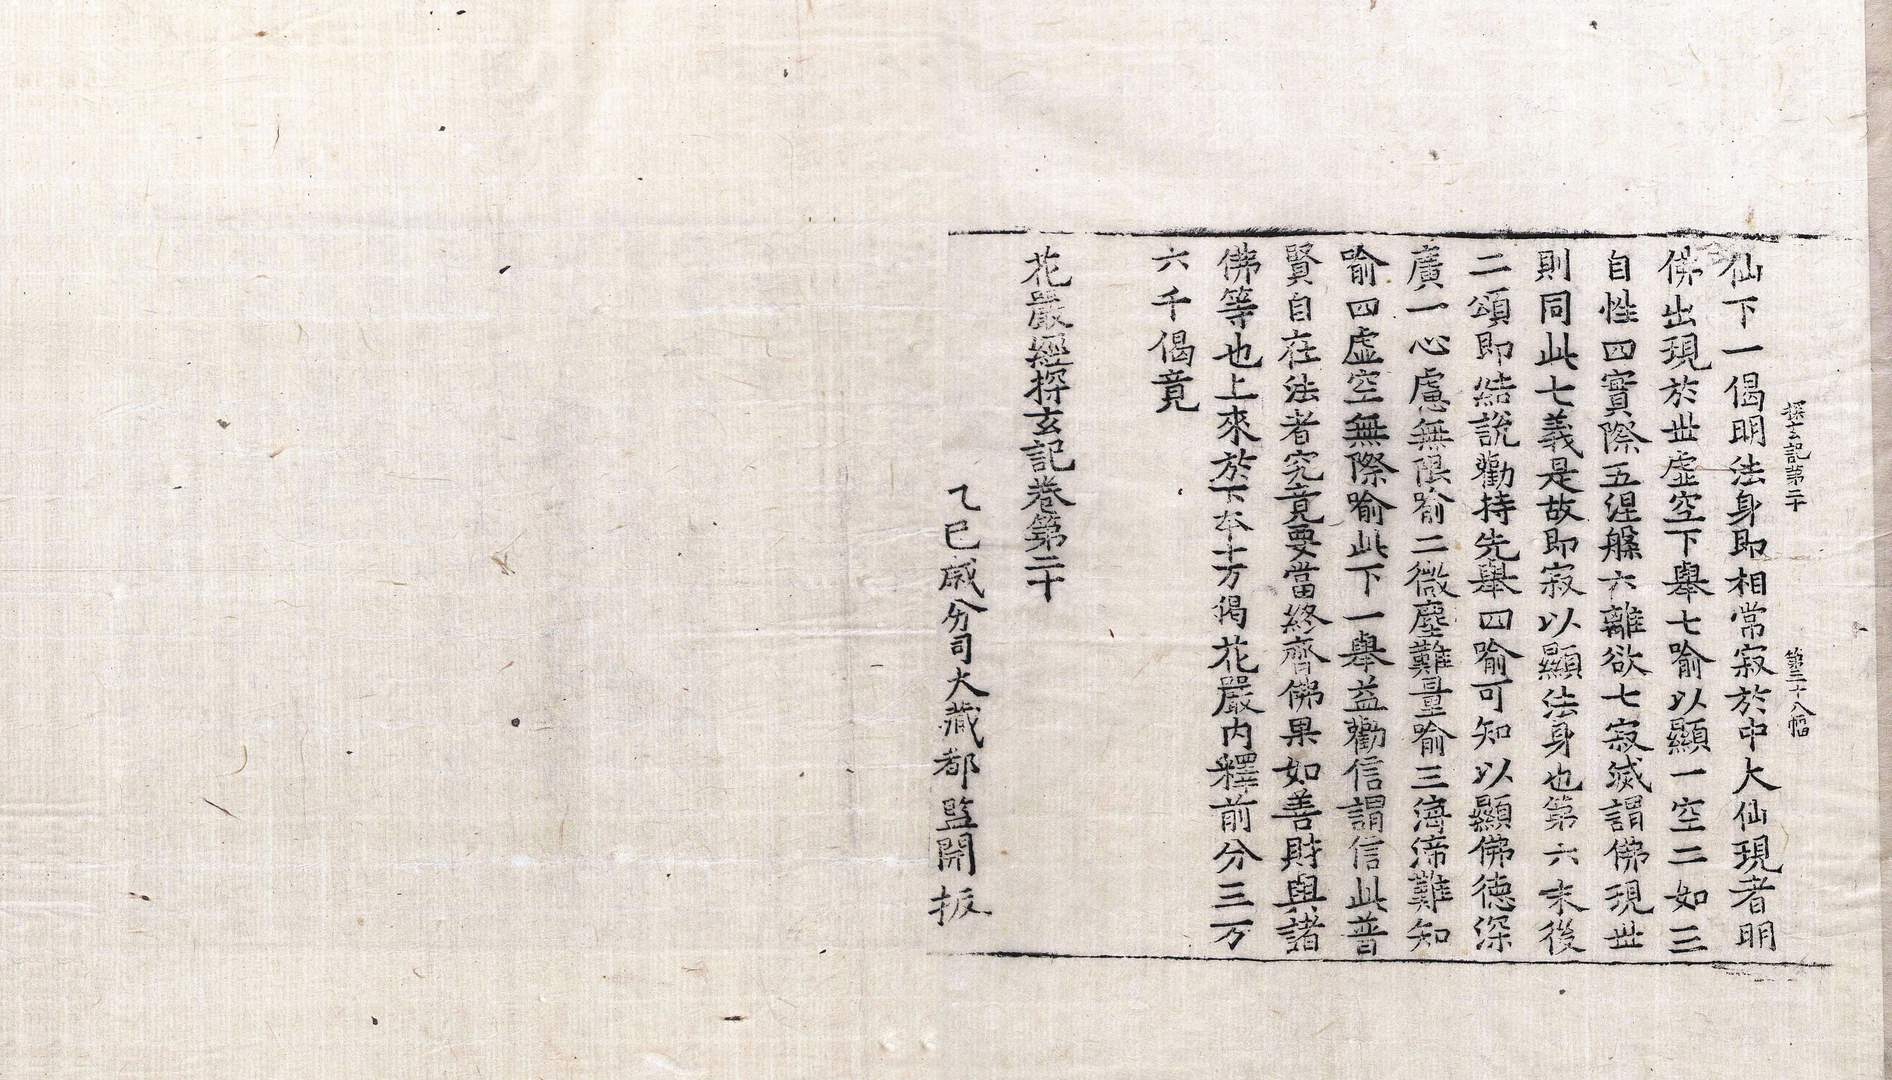 探玄記第二十 第三十八幅
仙下一偈明法身即相常寂於中大仙現者明
佛出現於世虛空下舉七喻以顯一空二如三
自性四實際五涅槃六離欲七寂滅謂佛現世
則同此七義是故即寂以顯法身也第六末後
二頌即結說勸持先舉四喻可知以顯佛德深
廣一心慮無限喻二微塵難量喻三海渧難知
喻四虛空無際喻此下一舉益勸信謂信此普
賢自在法者究竟要當終齊佛果如善財與諸
佛等也上來於下本十万偈花嚴內釋前分三万
六千偈竟
花嚴經探玄記卷第二十
乙巳歲分司大藏都監開板